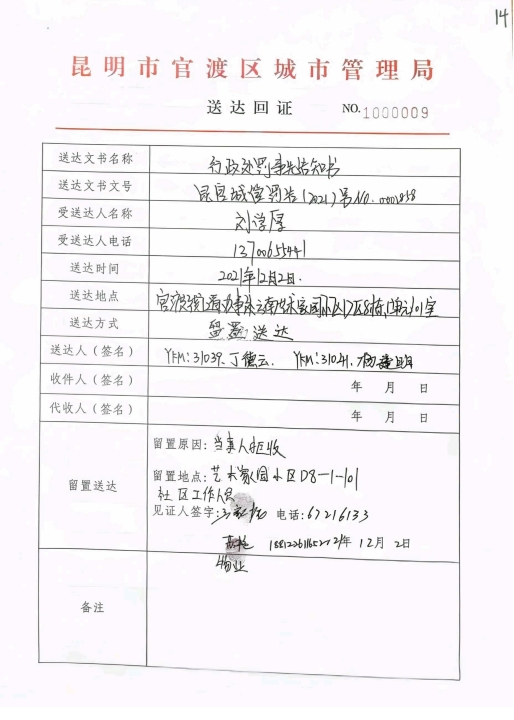 14
昆明市官渡区城市管理局
送达回证 NO.1000009
送达文书名称 行政处罚事先告知书
送达文书文号 昆官城管罚告(2021)第NO.0001858
受送达人名称 刘学厚
受送达人电话 1370655441
送达时间 2021年12月2日.
送达地点 官渡 街道办事处云南艺术家园小区D区8栋1单元101室
送达方式 留置送达
送达人(签名) YKM:31039.丁德云. YKM:31041.杨建明
收件人(签名) 年 月 日
代收人(签名) 年 月 日
留置送达
留置原因:当事人拒收
留置地点:艺术家园小区D8-1-101
社区工作人员
见证人签字: 电话:67216133
21年12月2日
物业
备注